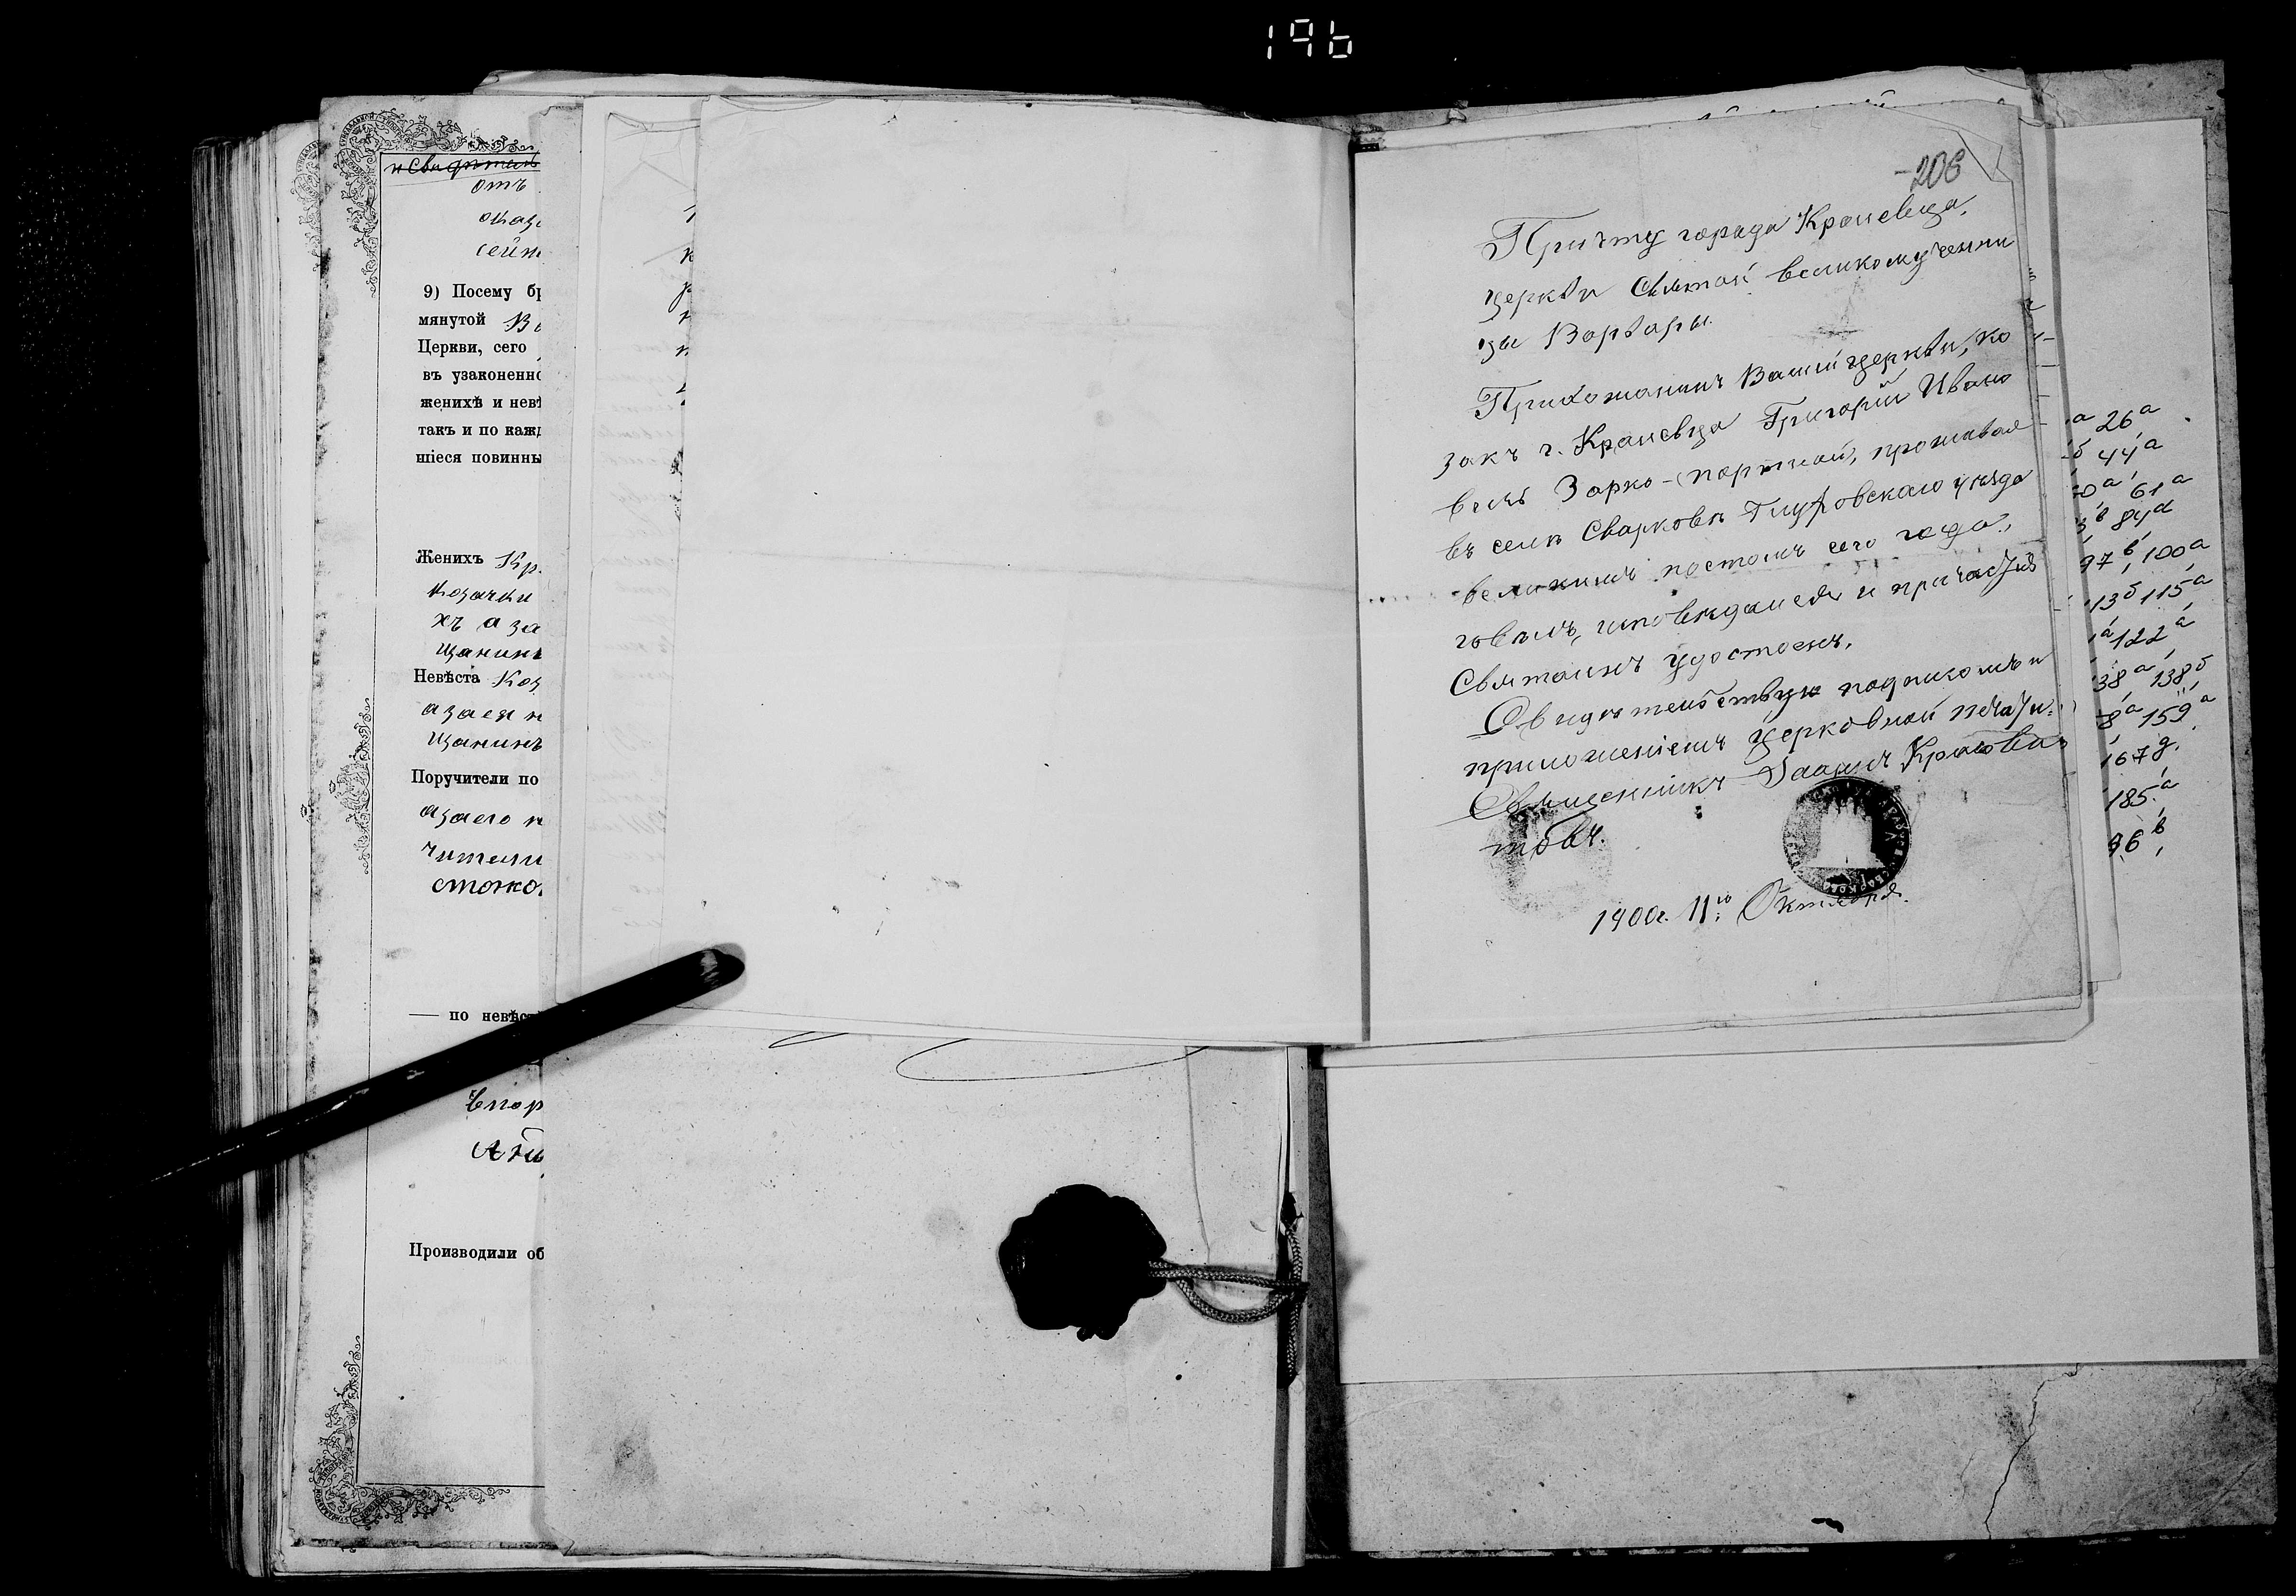 196
и свидѣтель
отъ
оказ
сейч
9) Посему бр
мянутой Во
Церкви, сего
въ узаконенно
женихѣ и невѣ
такъ и по кажд
шіеся повинны
Женихъ Кр.
козачки
хъ а за
щанинъ
Невѣста Коз
азаея н
щанинъ
Поручители по
азаего н
читали
стоко
— по невѣст
впор
Производили об
206
Причту города Кролевца,
церкви Святой великомучени
цы Варвары.
Прихожанинъ Вашей церкви, ко
закъ г. Кролевца Григорій Ивано
вичъ Зарко-Портной, проживая
въ селѣ Сварковѣ Глуховскаго уѣзда
великимъ постомъ сего года,
говѣлъ, исповѣдался и причастія
Святаинъ удостоенъ.
Свидѣтельствую подписомъ и
приложеніемъ церковной печати.
Священникъ Іоаннъ
1900г. 11го Октября.
а 26а
б 44а
60а 61а
в 84а
97в, 100а
113б 115а
а 122а
138а 138б
8а 159а
167д.
185а
96в